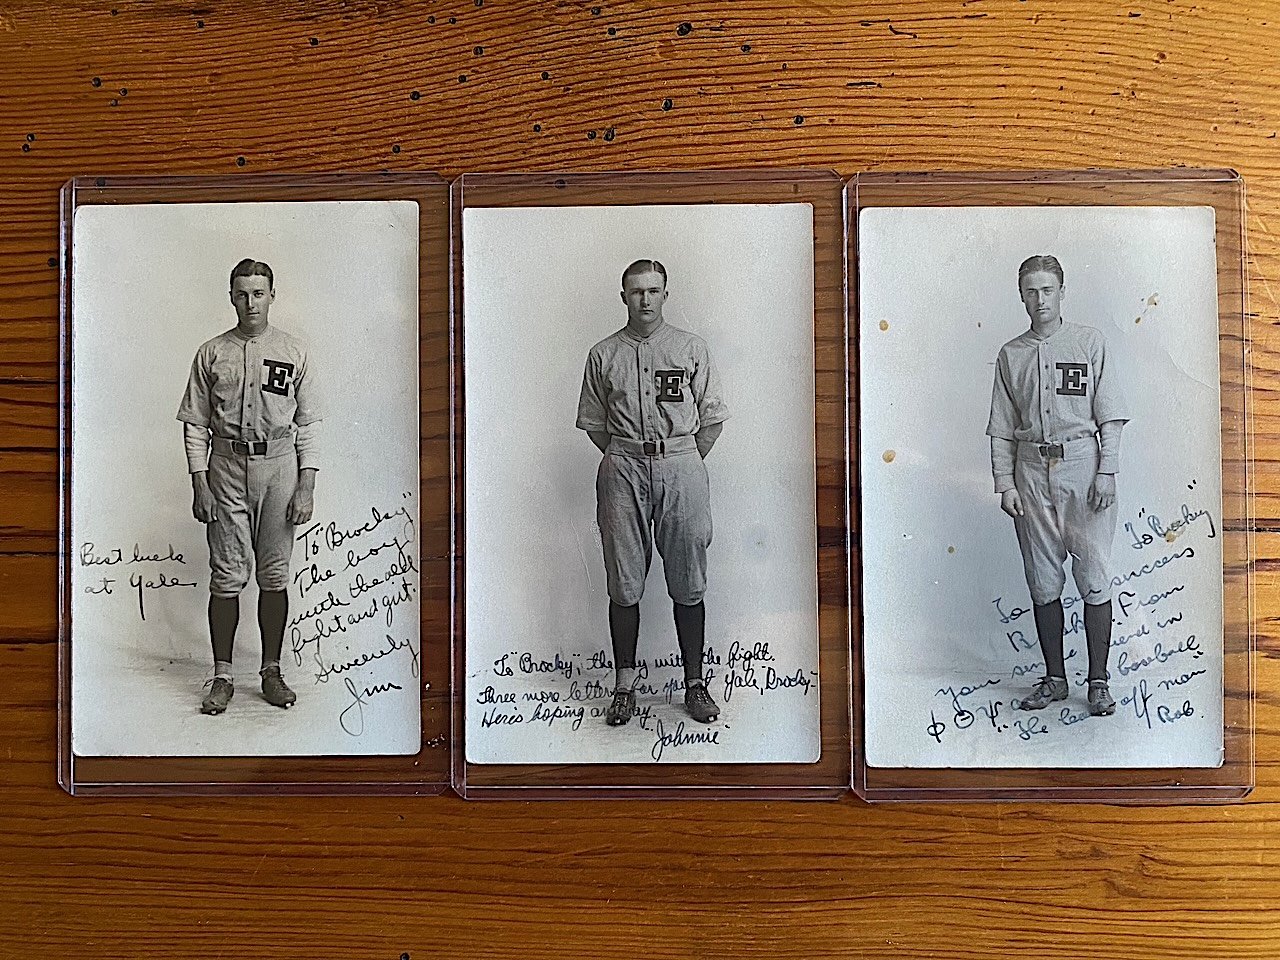 E
Best luck
at Yale
To "Brocky"
The boy
with the old
fight and grit.
Sincerely
Jim
E
To "Brocky", the boy with the fight.
Three more letters for you at Yale, "Brocky"
Here's hoping anyway.
"Johnnie"
E
To "Brocky"
To your success
From
your sincere friend in
Φ Θ Ψ and in baseball.
"The lead off man"
Rob.